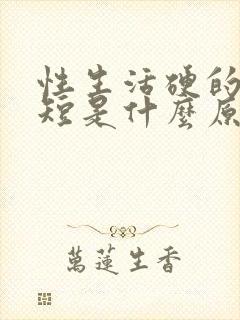 性生活硬的
短是什麼原
萬蓮生香